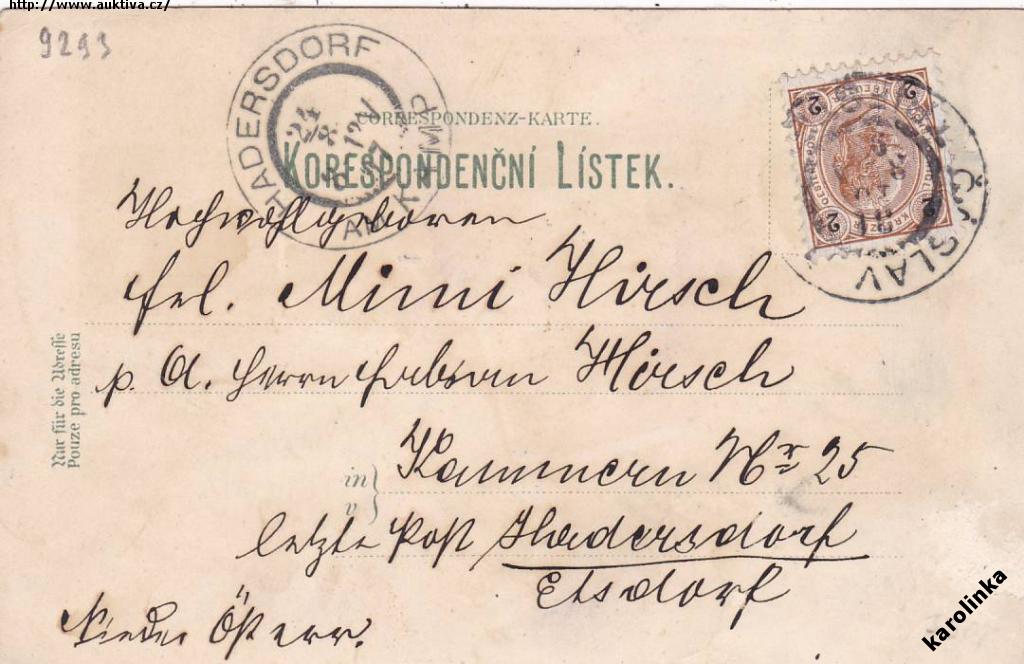 http://www.auktiva.cz/
9293
HADERSDORF
AM KAMP
CORRESPONDENZ-KARTE.
KORESPONDENČNÍ LÍSTEK.
ČÁSLAV
2 2
2 2
Hochwohlgeboren
Frl. Mimi Hirsch
p. A. Herrn Hirsch
Nur für die Adresse
Pouze pro adresu
in
v
Kammern Nr 25
letzte Post Hadersdorf
Etsdorf
Nieder Österr.
karolinka